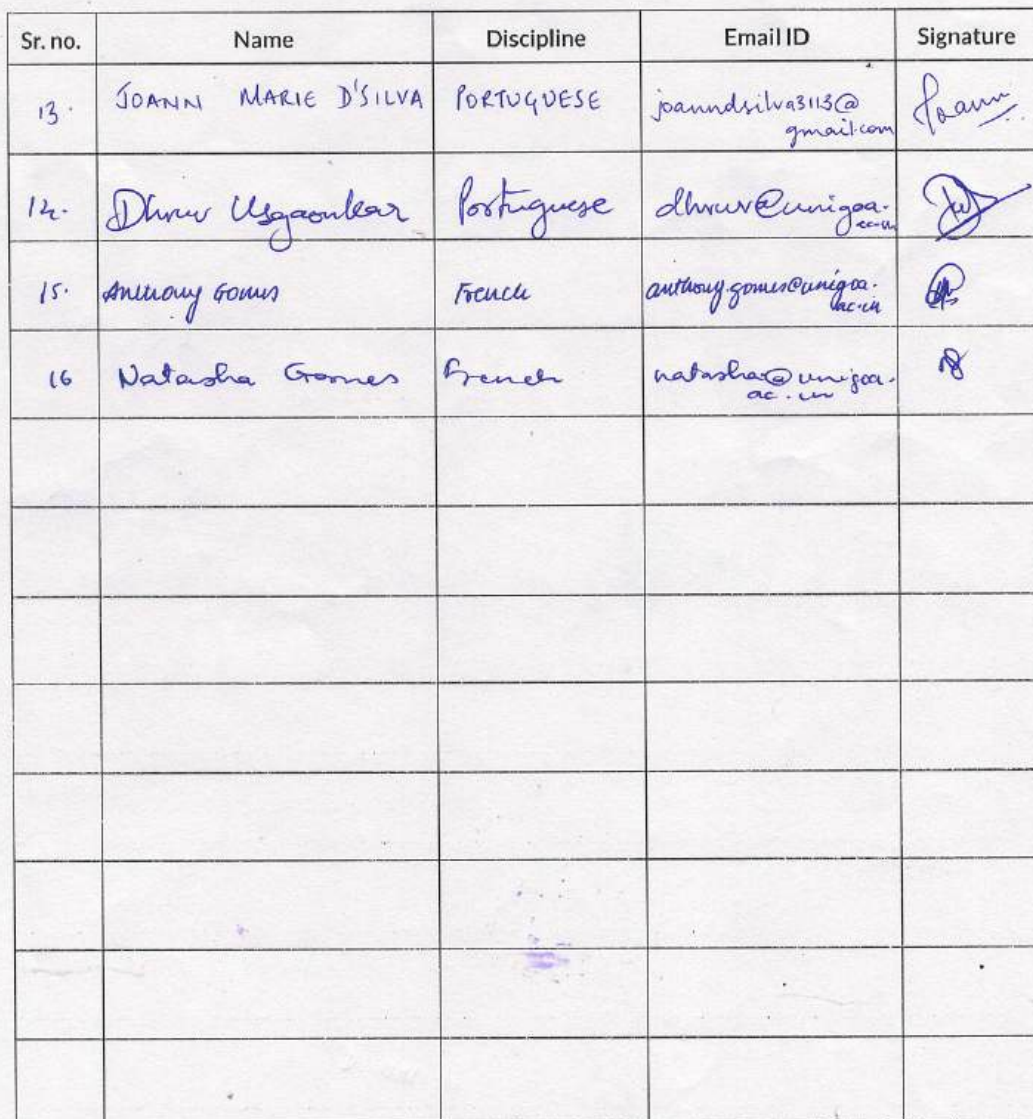 Sr. no. Name Discipline Email ID Signature
13. JOANN MARIE D'SILVA PORTUGUESE joanndsilva3113@
gmail.com Joann
14. Dhruv Usgaonkar Portuguese dhruv@unigoa.
ac.in
15. Anthony Gomes French anthony.gomes@unigoa.
ac.in
16 Natasha Gomes French natasha@unigoa.
ac.in